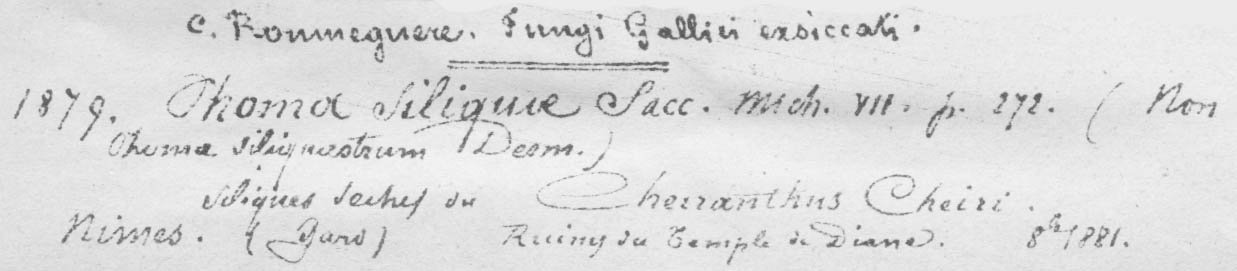 C. Roumeguere. Fungi Gallici exsiccati.
1879. Phoma Siliquæ Sacc. Mich. VII. p. 272. (Non
Phoma siliquastrum Desm.)
Siliques seches du Cheiranthus Cheiri.
Nimes. (Gard) Ruines du Temple de Diane. 8bre 1881.